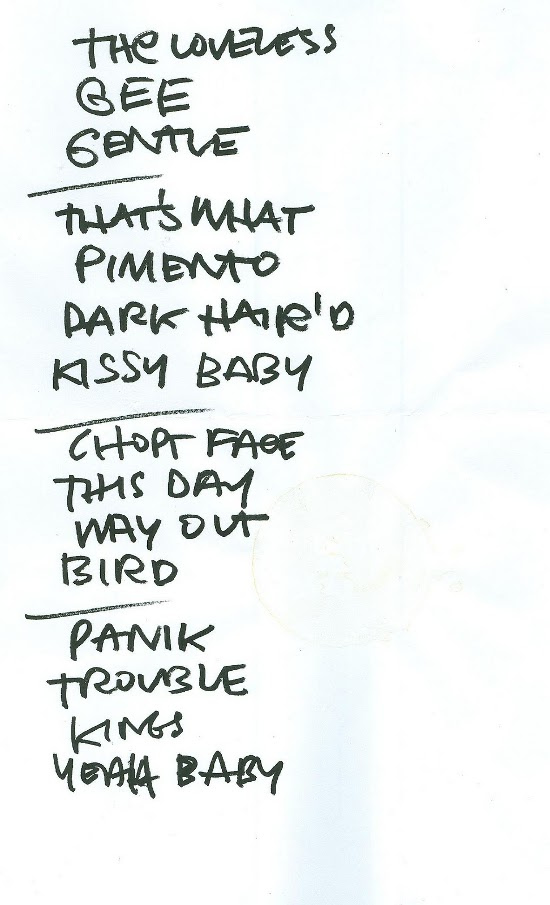 THE LOVELESS
GEE
GENTLE
THAT'S WHAT
PIMENTO
DARK HAIR'D
KISSY BABY
CHOPT FACE
THIS DAY
WAY OUT
BIRD
PANIK
TROUBLE
KINGS
YEAH BABY